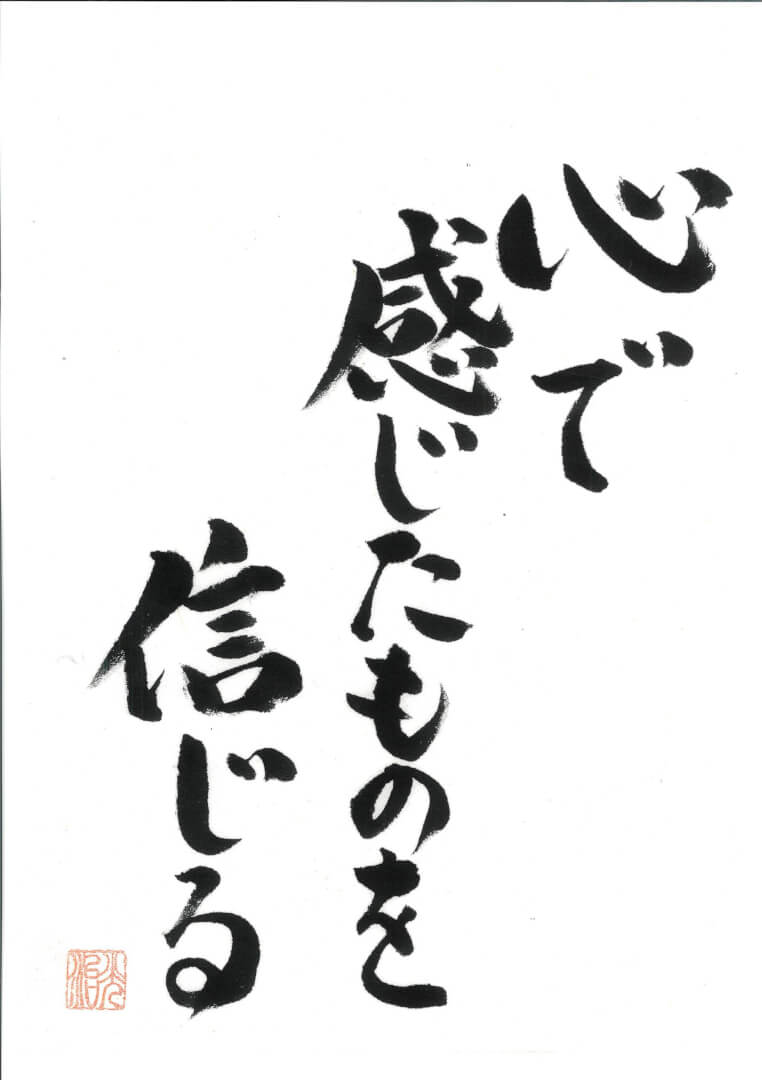 心で
感じたものを
信じる